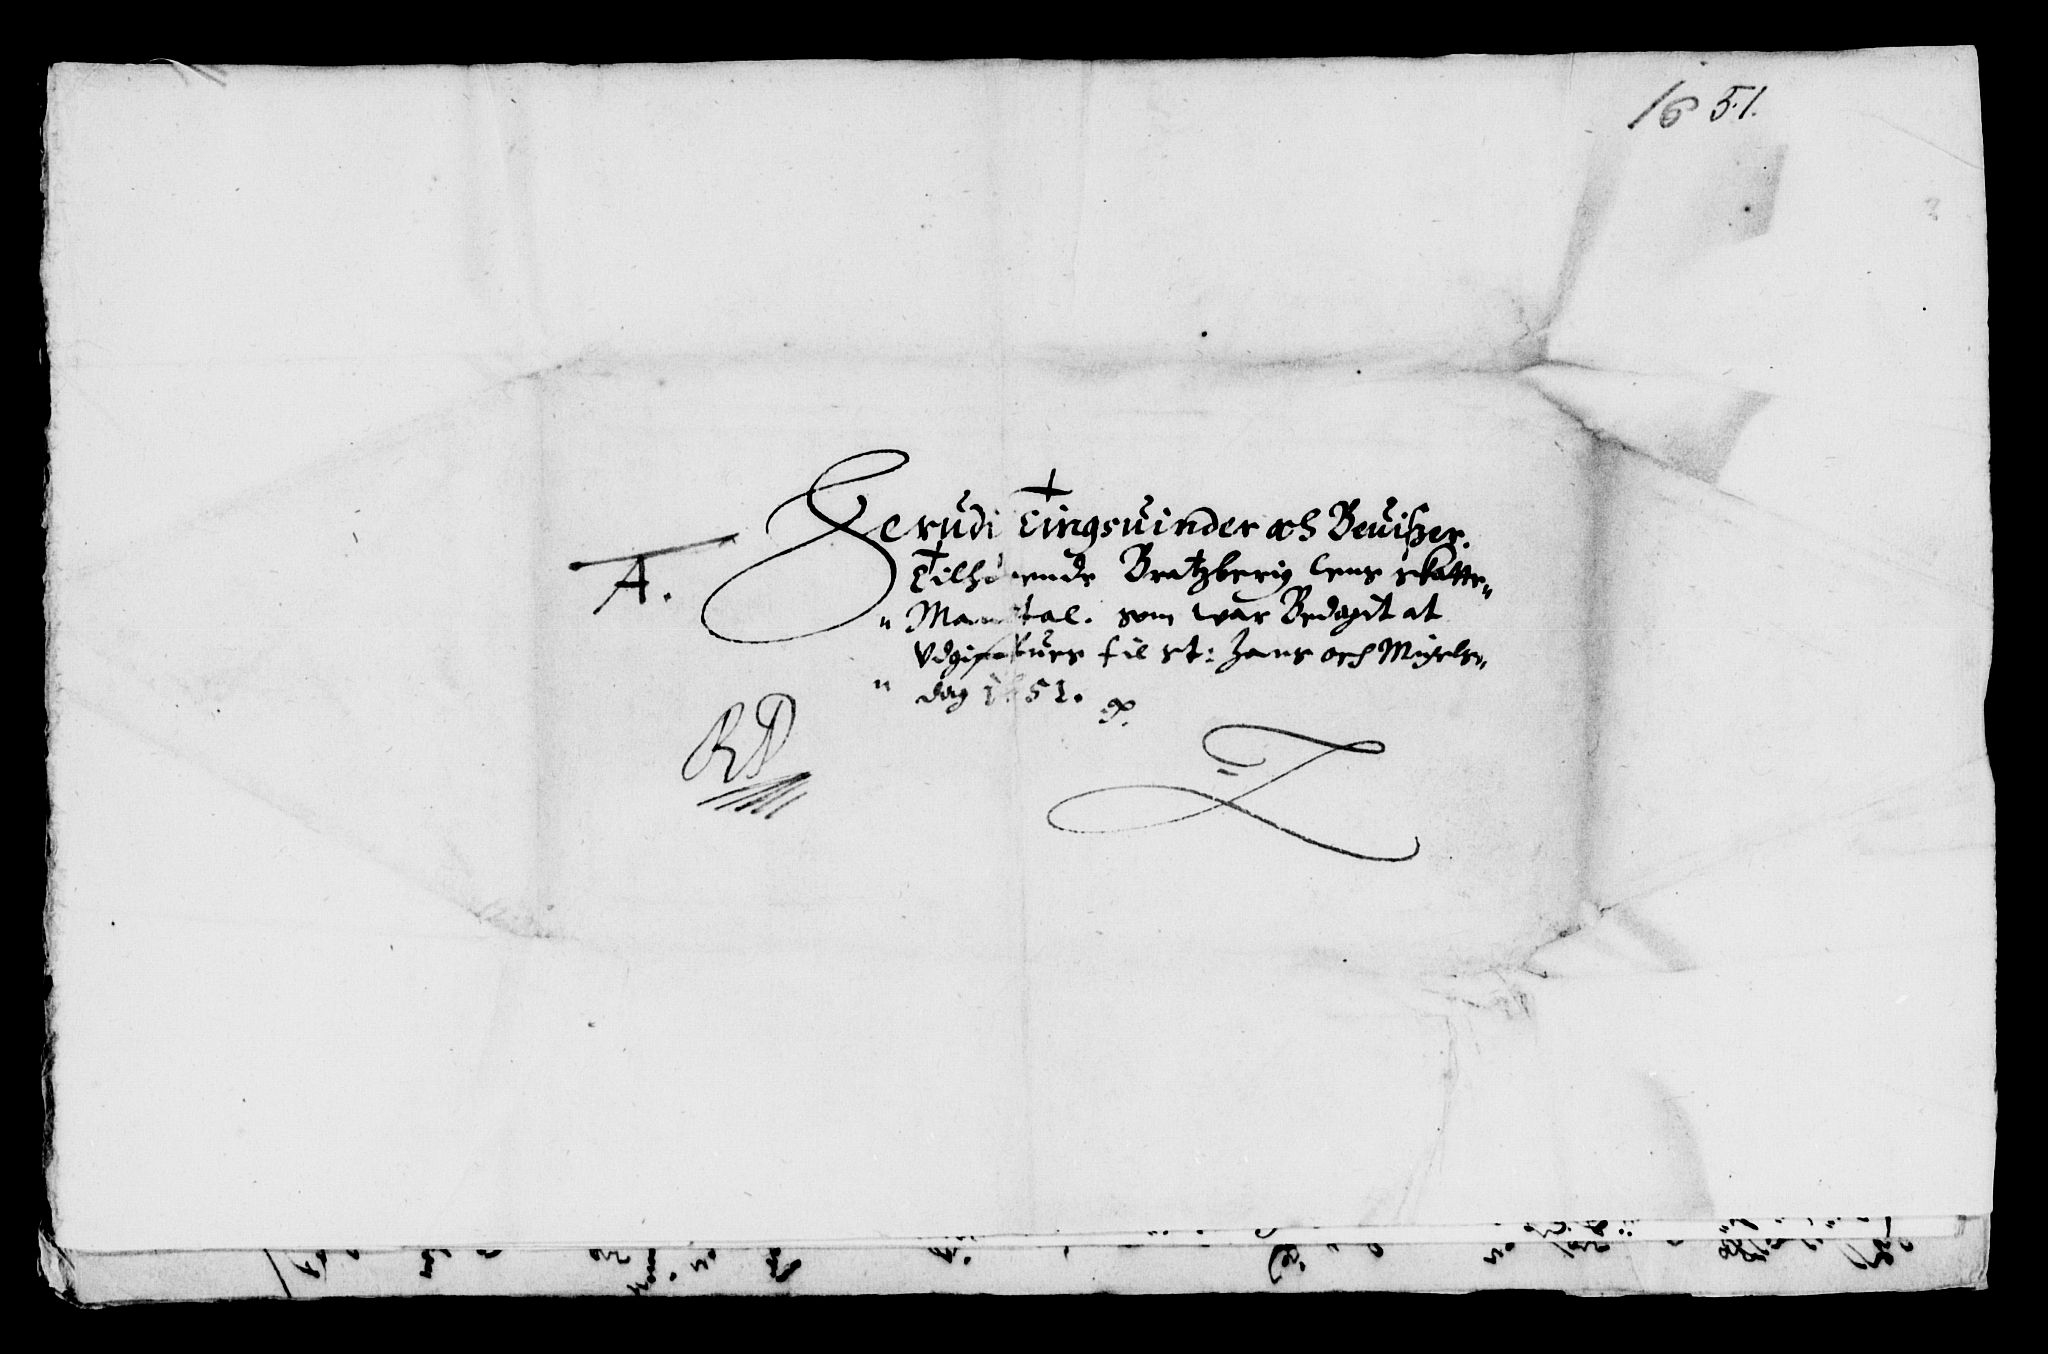 1651.
Herudi Tingsuinder och Beuißer.
A.
Tilhørende Bratzberig lens skatte„
„ Mandtal. som war Bedagit at
Vdgifftues til st: Hans och Migels„
„ dag 1651.
RP